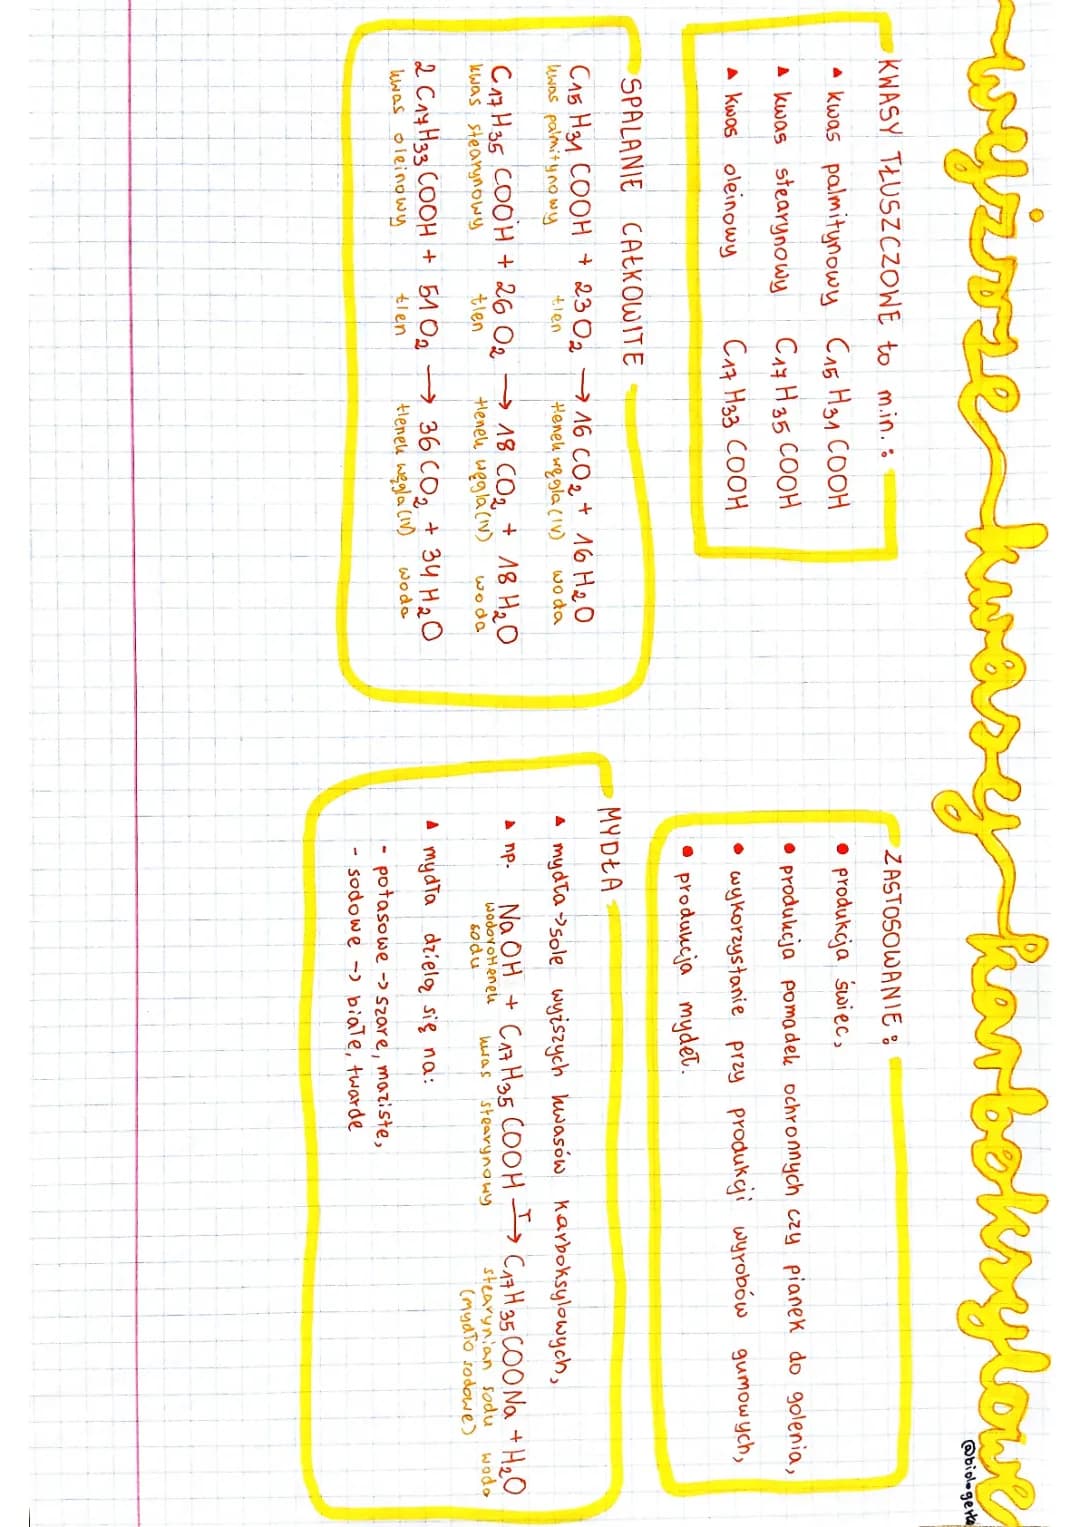 wyższe kwasy karboksylowe
@biologetka
KWASY TŁUSZCZOWE to m.in.:
▲ kwas palmitynowy C15H31COOH
▲ kwas stearynowy C17H35COOH
▲ kwas oleinowy C17H33COOH
SPALANIE CAŁKOWITE
C15H31COOH + 23O2 → 16CO2 + 16H2O
kwas palmitynowy tlen tlenek węgla(IV) woda
C17H35COOH + 26O2 → 18CO2 + 18H2O
kwas stearynowy tlen tlenek węgla(IV) woda
2C17H33COOH + 51O2 → 36CO2 + 34H2O
kwas oleinowy tlen tlenek węgla(IV) woda
ZASTOSOWANIE:
• produkcja świec,
• produkcja pomadek ochronnych czy pianek do golenia,
• wykorzystanie przy produkcji wyrobów gumowych,
• produkcja mydeł.
MYDŁA
▲ mydła → sole wyższych kwasów karboksylowych,
▲ np. NaOH + C17H35COOH —T→ C17H35COONa + H2O
wodorotlenek sodu kwas stearynowy stearynian sodu woda
(mydło sodowe)
▲ mydła dzielą się na:
- potasowe → szare, maziste,
- sodowe → białe, twarde